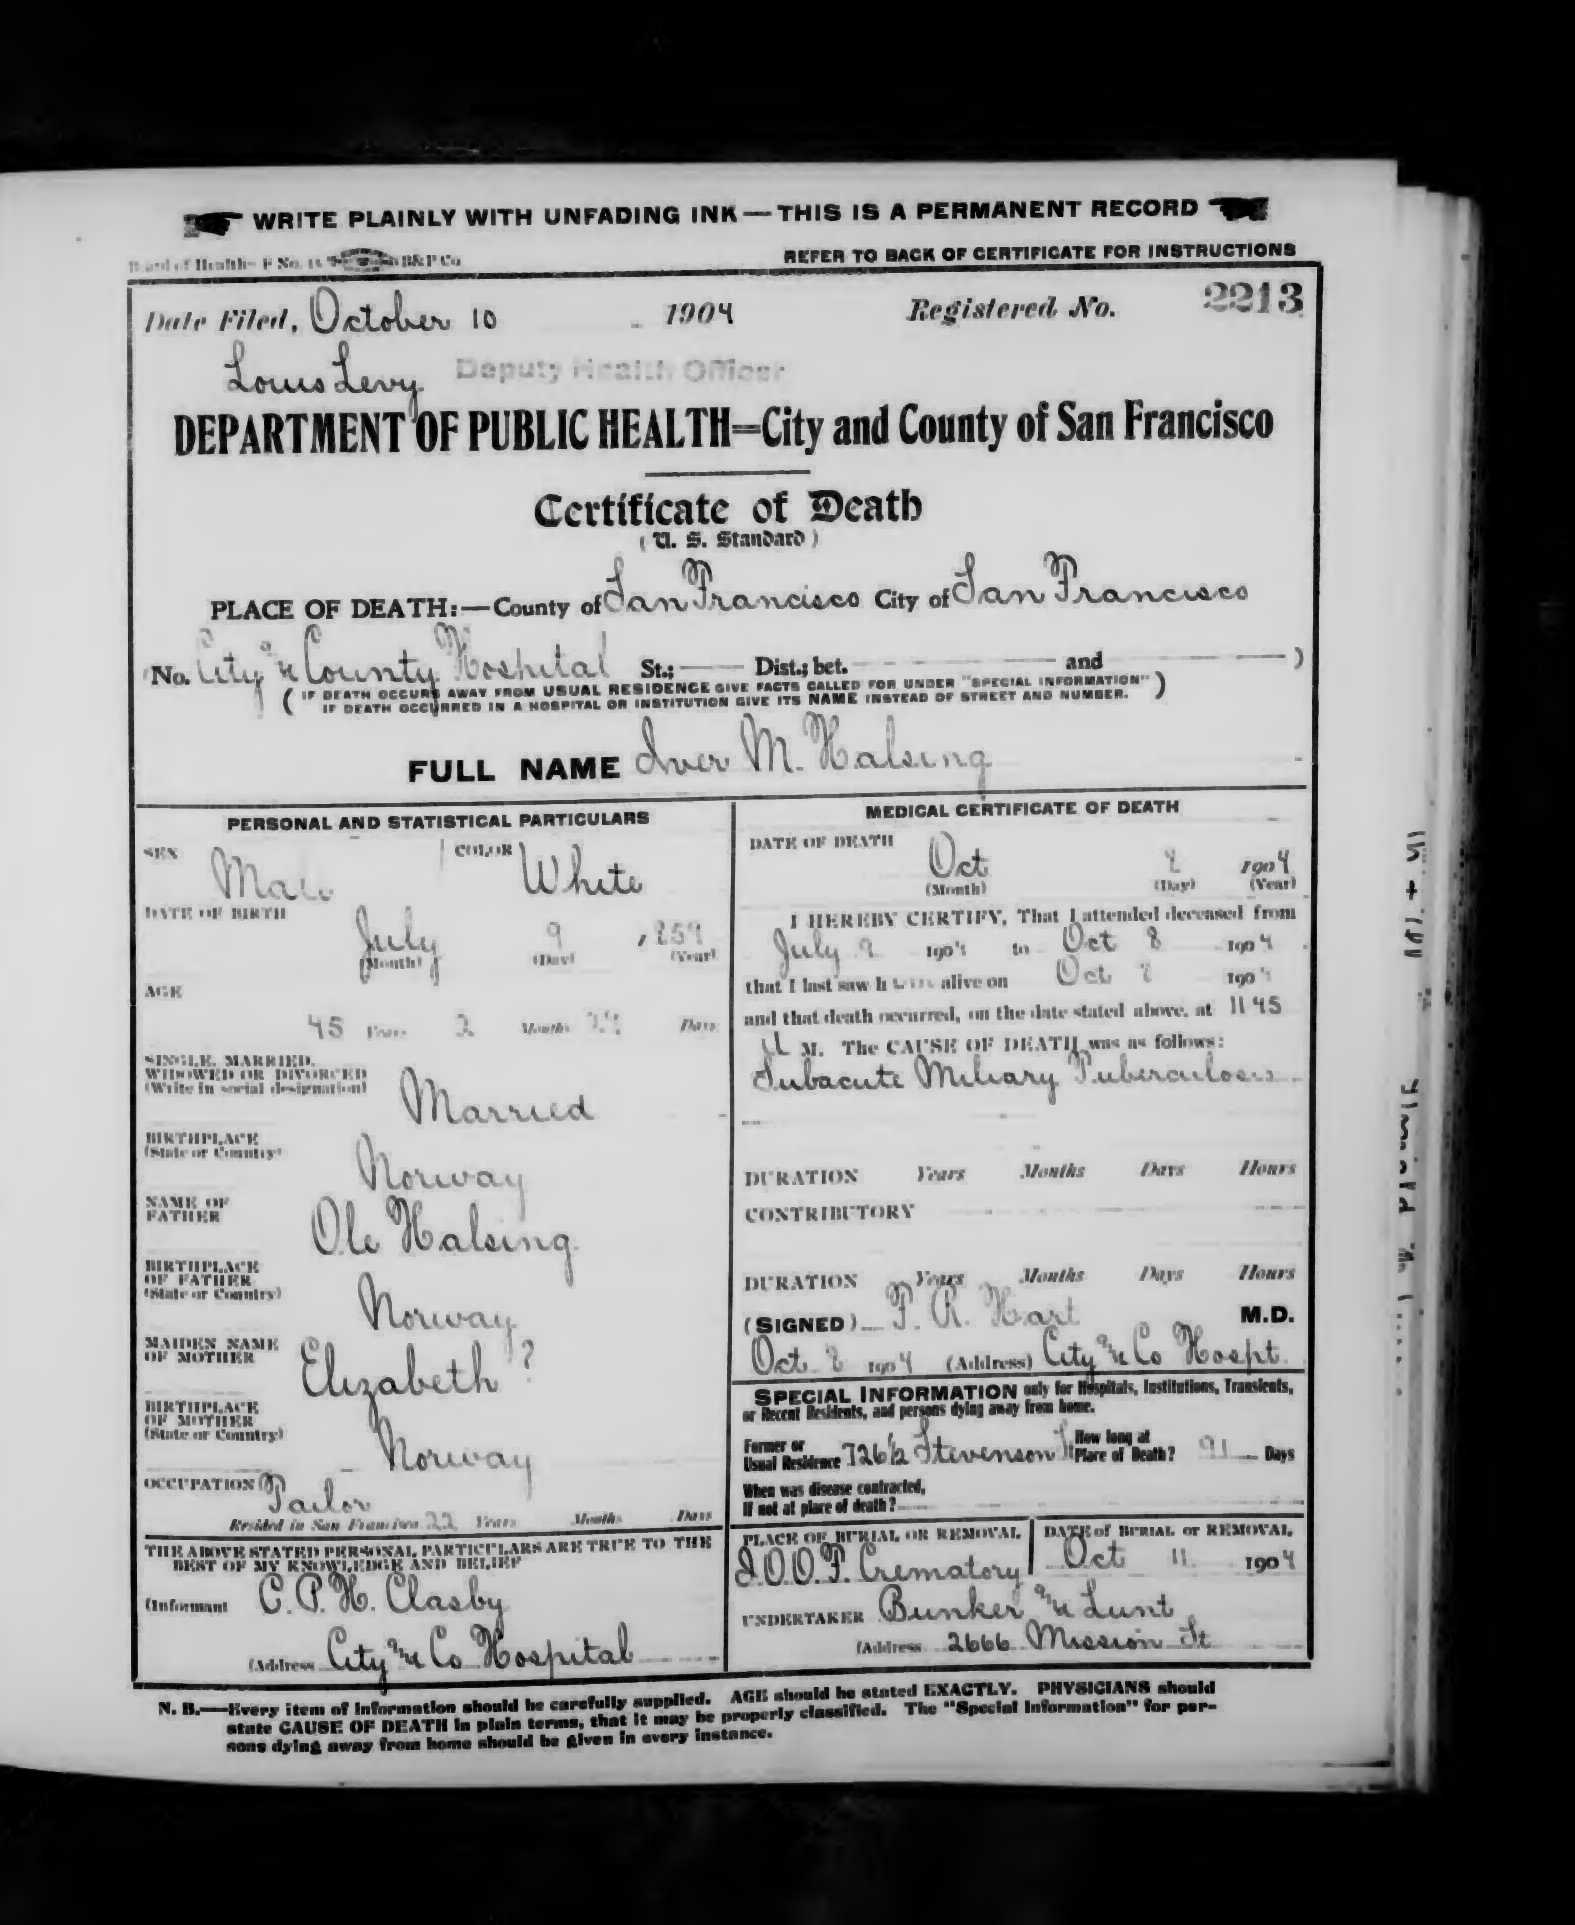 WRITE PLAINLY WITH UNFADING INK — THIS IS A PERMANENT RECORD
Board of Health—F No. B&P Co
REFER TO BACK OF CERTIFICATE FOR INSTRUCTIONS
Date Filed, October 10 1904 Registered No. 2213
Louis Levy Deputy Health Officer
DEPARTMENT OF PUBLIC HEALTH=City and County of San Francisco
Certificate of Death
(U. S. Standard)
PLACE OF DEATH:—County of San Francisco City of San Francisco
(No. City & County Hospital St.; —— Dist.; bet. —— and —— )
(IF DEATH OCCURS AWAY FROM USUAL RESIDENCE GIVE FACTS CALLED FOR UNDER "SPECIAL INFORMATION"
IF DEATH OCCURRED IN A HOSPITAL OR INSTITUTION GIVE ITS NAME INSTEAD OF STREET AND NUMBER.)
FULL NAME Iver M. Halsing
PERSONAL AND STATISTICAL PARTICULARS
SEX Male COLOR White
DATE OF BIRTH July 9 , 859
(Month) (Day) (Year)
AGE
45 Years 2 Months 29 Days
SINGLE, MARRIED,
WIDOWED OR DIVORCED
(Write in social designation) Married
BIRTHPLACE
(State or Country) Norway
NAME OF
FATHER Ole Halsing
BIRTHPLACE
OF FATHER
(State or Country) Norway
MAIDEN NAME
OF MOTHER Elizabeth ?
BIRTHPLACE
OF MOTHER
(State or Country) Norway
OCCUPATION Tailor
Resided in San Francisco 22 Years Months Days
THE ABOVE STATED PERSONAL PARTICULARS ARE TRUE TO THE
BEST OF MY KNOWLEDGE AND BELIEF
(Informant C. P. H. Clasby
(Address City & Co Hospital
MEDICAL CERTIFICATE OF DEATH
DATE OF DEATH Oct 8 1904
(Month) (Day) (Year)
I HEREBY CERTIFY, That I attended deceased from
July 9 1904 to Oct 8 1904
that I last saw h alive on Oct 8 1904
and that death occurred, on the date stated above, at 11 45
M. The CAUSE OF DEATH was as follows:
Subacute Miliary Tuberculosis
DURATION Years Months Days Hours
CONTRIBUTORY
DURATION Years Months Days Hours
(SIGNED) T. R. Hart M.D.
Oct 8 1904 (Address) City & Co Hospt.
SPECIAL INFORMATION only for Hospitals, Institutions, Transients,
or Recent Residents, and persons dying away from home.
Former or
Usual Residence 726½ Stevenson St How long at
Place of Death? 91 Days
When was disease contracted,
If not at place of death?
PLACE OF BURIAL OR REMOVAL DATE of BURIAL or REMOVAL
I.O.O.F. Crematory Oct 11 1904
UNDERTAKER Bunker & Lunt
(Address 2666 Mission St
N. B.—Every item of information should be carefully supplied. AGE should be stated EXACTLY. PHYSICIANS should
state CAUSE OF DEATH in plain terms, that it may be properly classified. The "Special Information" for per-
sons dying away from home should be given in every instance.